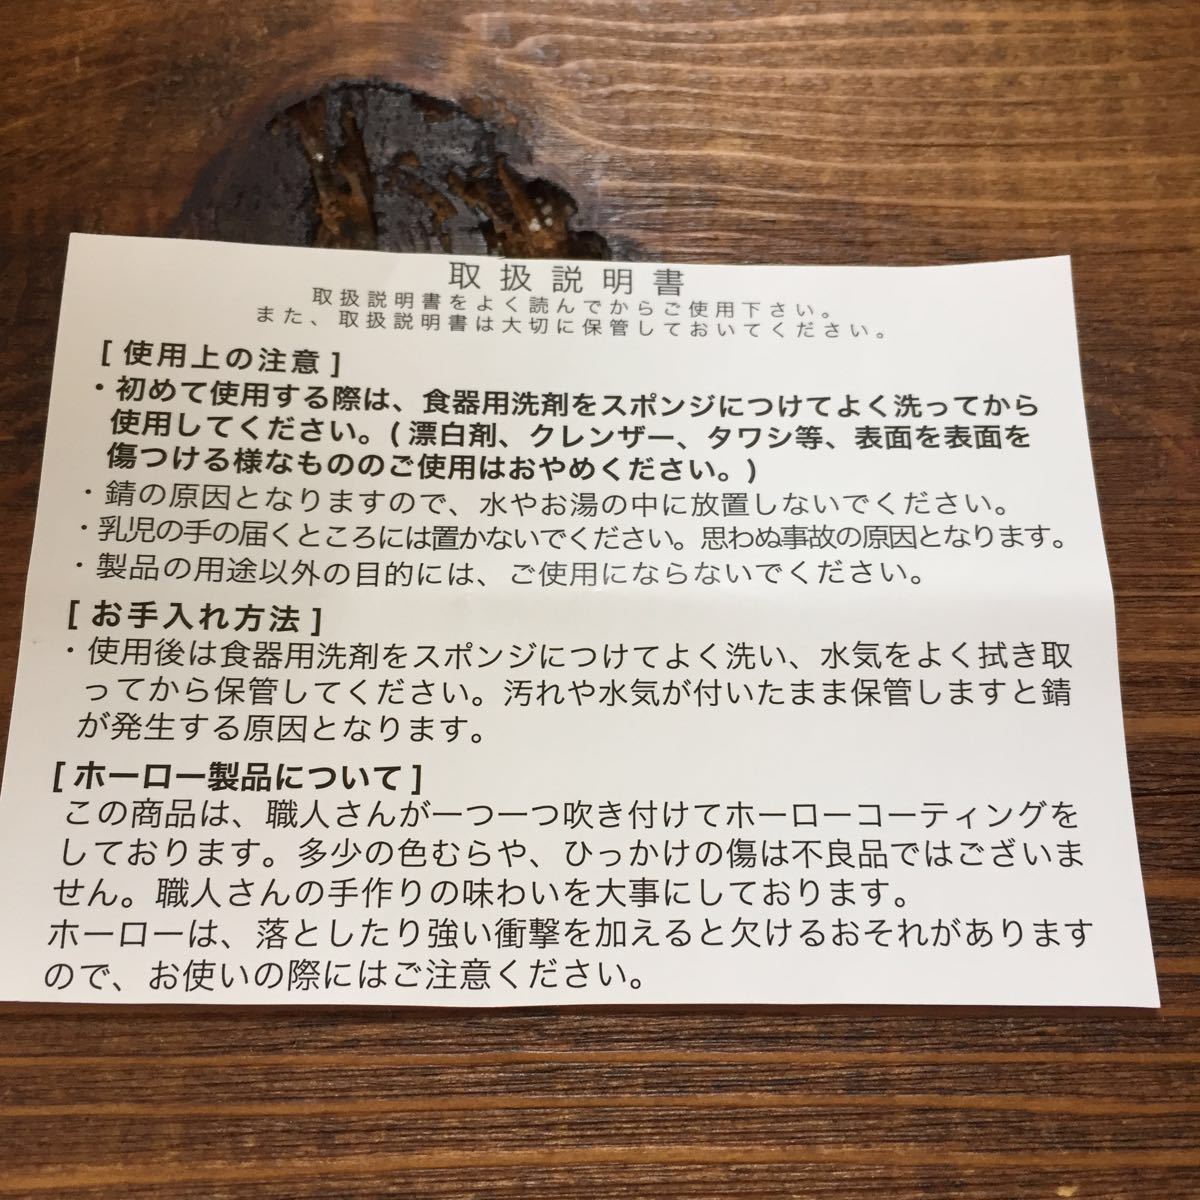 取扱説明書
取扱説明書をよく読んでからご使用下さい。
また、取扱説明書は大切に保管しておいてください。
[ 使用上の注意 ]
・初めて使用する際は、食器用洗剤をスポンジにつけてよく洗ってから
使用してください。( 漂白剤、クレンザー、タワシ等、表面を表面を
傷つける様なもののご使用はおやめください。)
・錆の原因となりますので、水やお湯の中に放置しないでください。
・乳児の手の届くところには置かないでください。思わぬ事故の原因となります。
・製品の用途以外の目的には、ご使用にならないでください。
[ お手入れ方法 ]
・使用後は食器用洗剤をスポンジにつけてよく洗い、水気をよく拭き取
ってから保管してください。汚れや水気が付いたまま保管しますと錆
が発生する原因となります。
[ ホーロー製品について ]
この商品は、職人さんが一つ一つ吹き付けてホーローコーティングを
しております。多少の色むらや、ひっかけの傷は不良品ではございま
せん。職人さんの手作りの味わいを大事にしております。
ホーローは、落としたり強い衝撃を加えると欠けるおそれがあります
ので、お使いの際にはご注意ください。